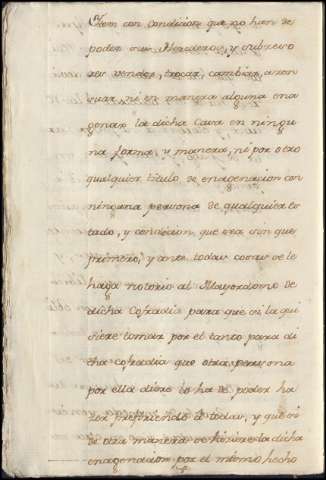 Iten con condicion que no han de
poder sus Herederos, y subceso
res vender, trocar, cambiar, acen
suar, ni en manera alguna ena
genar la dicha Casa en ningu
na forma, y manera, ni por otro
qualquier titulo de enagenacion con
ninguna persona de qualquier es
tado, y condicion, que sea sin que
primero, y ante todas cosas se le
haga notorio al Mayordomo de
dicha Cofradia para que si la qui
siere tomar por el tanto para di
cha cofradia que otra persona
por ella diere lo ha de poder ha
zer prefiriendo a todas, y que si
de otra manera se hiziere la dicha
enagenacion por el mismo hecho